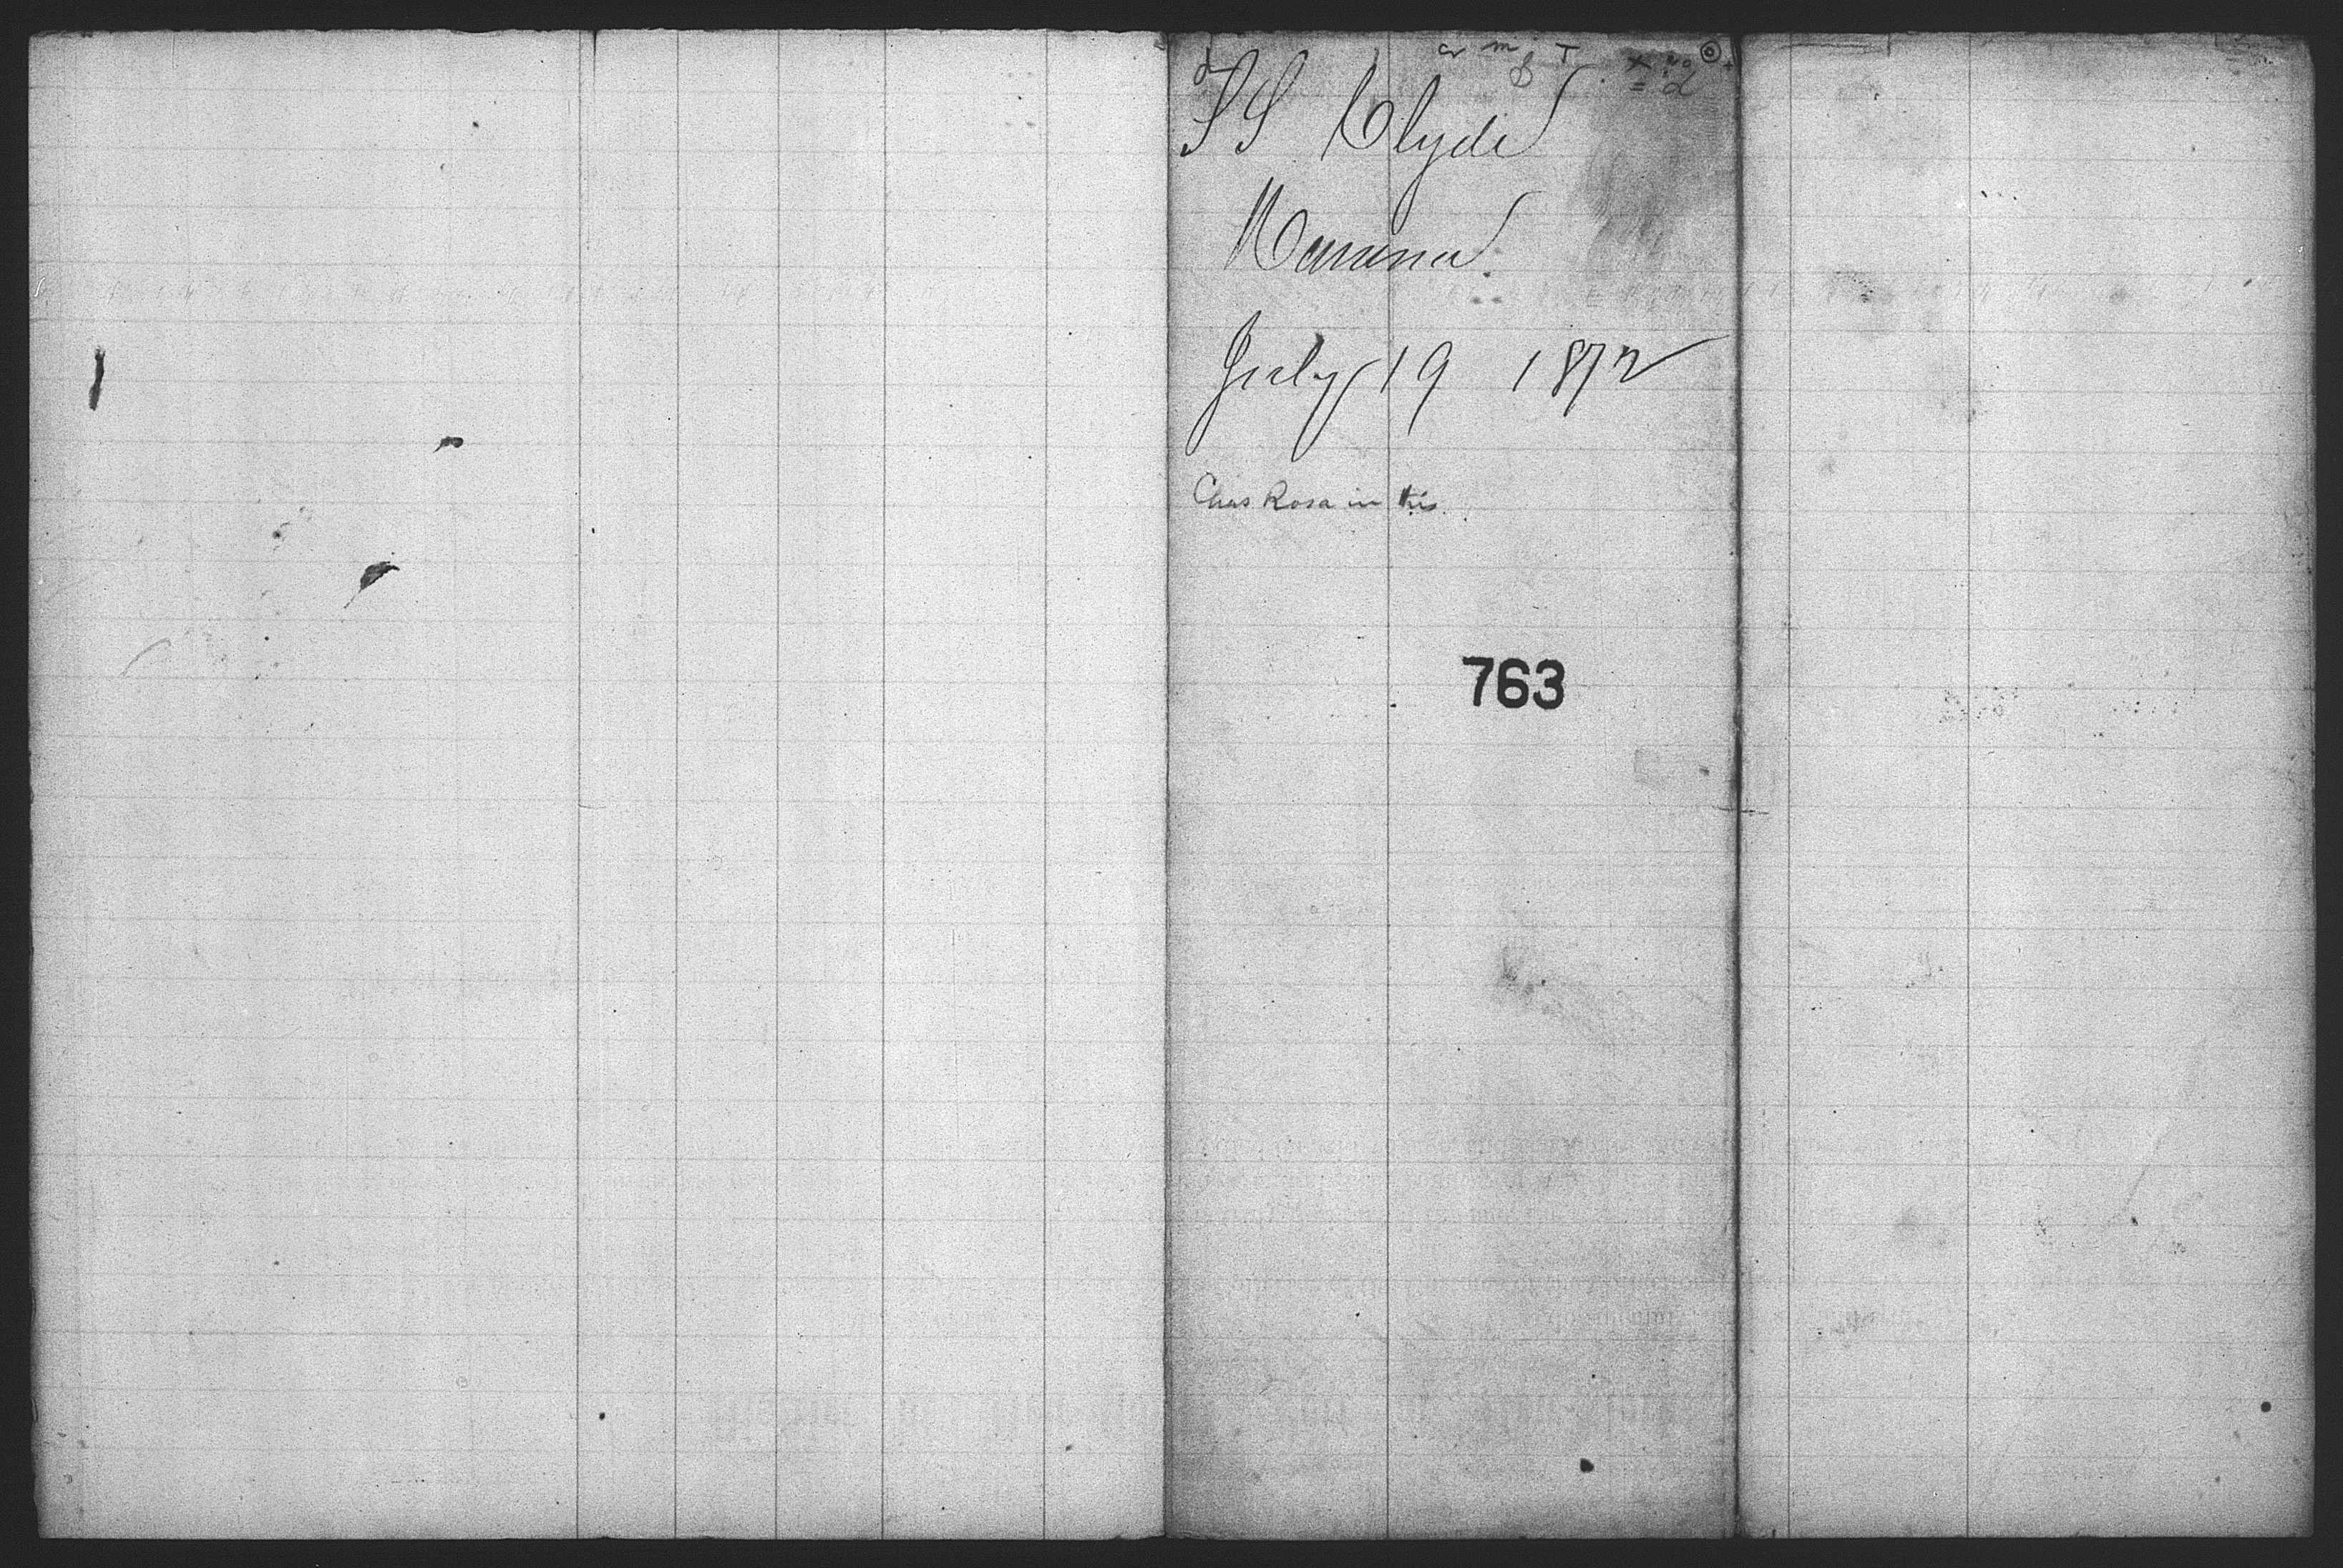 SS Clyde
July 19 1872
Chas Rosa in this.
763